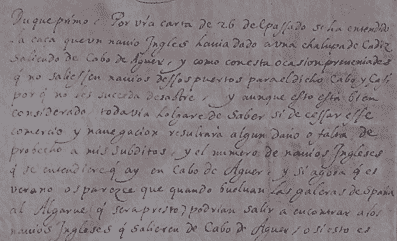 Duque primo. Por vra carta de 26 del passado se ha entendido
la caca que un navio Ingles havia dado a una chalupa de Cadiz
saliendo de Cabo de Aguer, y como con esta ocasion preveniades
q̃ no saliessen navios dessos puertos para el dicho Cabo y Cafi
por q̃ no les suceda desastre, y aunque esto esta bien
considerado, todavia holgare de saber si de cessar esse
comercio y navegacion resultara algun daño o falta de
provecho a mis subditos, y el numero de navios Ingleses
q̃ se entendiere q̃ ay en Cabo de Aguer, y si agora q̃ es
verano os pareze que quando buelvan las galeras de españa
al Algarve q̃ sera presto podrian salir a encontrar a los
navios Ingleses q̃ salieren de Cabo de Aguer, o si esto es